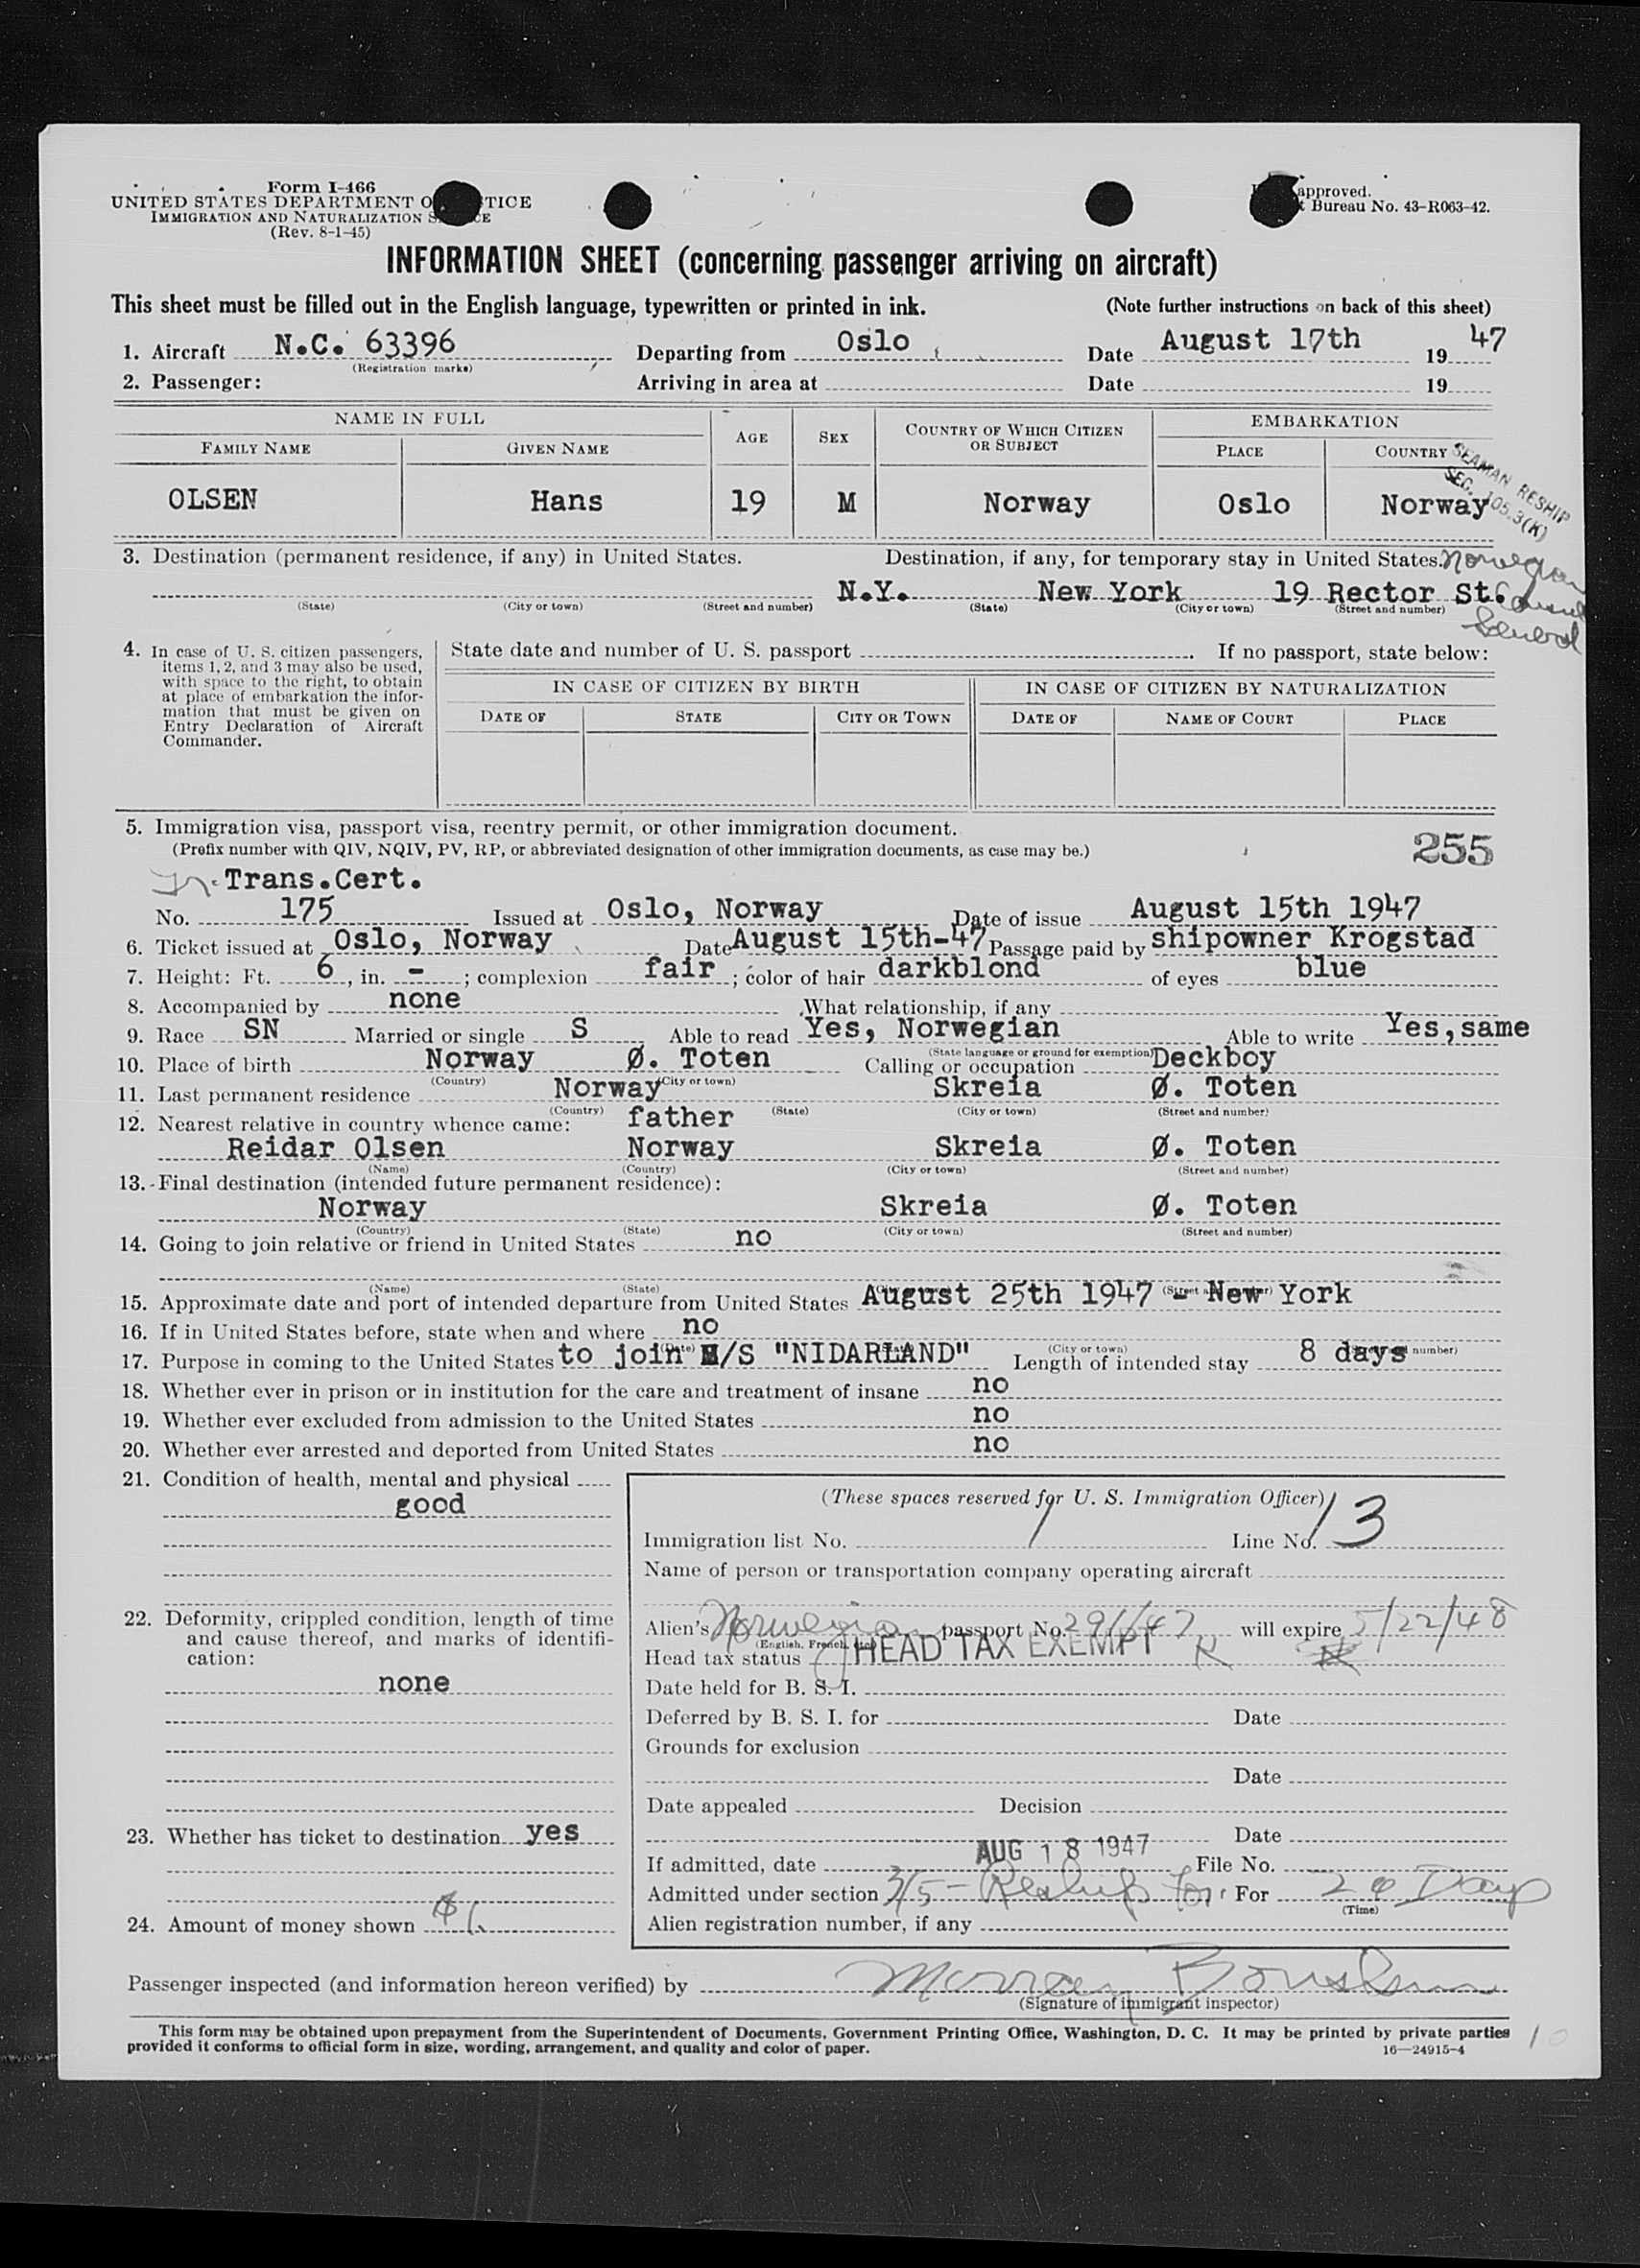 Form I-466
UNITED STATES DEPARTMENT O TICE
IMMIGRATION AND NATURALIZATION S CE
(Rev. 8-1-45)
approved.
Bureau No. 43-R063-42.
INFORMATION SHEET (concerning passenger arriving on aircraft)
This sheet must be filled out in the English language, typewritten or printed in ink. (Note further instructions on back of this sheet)
1. Aircraft N.C. 63396 Departing from Oslo Date August 17th 19 47
(Registration marks)
2. Passenger: Arriving in area at Date 19
NAME IN FULL AGE SEX COUNTRY OF WHICH CITIZEN OR SUBJECT EMBARKATION
FAMILY NAME GIVEN NAME PLACE COUNTRY
SEAMAN RESHIP
SEC. 105.3(K)
OLSEN Hans 19 M Norway Oslo Norway
3. Destination (permanent residence, if any) in United States. Destination, if any, for temporary stay in United States. Norwegian
N.Y. New York 19 Rector St. Consul
(State) (City or town) (Street and number) (State) (City or town) (Street and number)
General
4. In case of U. S. citizen passengers, items 1, 2, and 3 may also be used, with space to the right, to obtain at place of embarkation the information that must be given on Entry Declaration of Aircraft Commander.
State date and number of U. S. passport . If no passport, state below:
IN CASE OF CITIZEN BY BIRTH IN CASE OF CITIZEN BY NATURALIZATION
DATE OF STATE CITY OR TOWN DATE OF NAME OF COURT PLACE
5. Immigration visa, passport visa, reentry permit, or other immigration document.
(Prefix number with QIV, NQIV, PV, RP, or abbreviated designation of other immigration documents, as case may be.)
255
Trans.Cert.
No. 175 Issued at Oslo, Norway Date of issue August 15th 1947
6. Ticket issued at Oslo, Norway Date August 15th-47 Passage paid by shipowner Krogstad
7. Height: Ft. 6, in. - ; complexion fair ; color of hair darkblond of eyes blue
8. Accompanied by none What relationship, if any
9. Race SN Married or single S Able to read Yes, Norwegian Able to write Yes,same
(State language or ground for exemption)
10. Place of birth Norway Ø. Toten Calling or occupation Deckboy
(Country) (City or town)
11. Last permanent residence Norway Skreia Ø. Toten
(Country) (State) (City or town) (Street and number)
12. Nearest relative in country whence came: father
Reidar Olsen Norway Skreia Ø. Toten
(Name) (Country) (City or town) (Street and number)
13. Final destination (intended future permanent residence):
Norway Skreia Ø. Toten
(Country) (State) (City or town) (Street and number)
14. Going to join relative or friend in United States no
(Name) (State)
15. Approximate date and port of intended departure from United States August 25th 1947 - New York
16. If in United States before, state when and where no
(City or town)
17. Purpose in coming to the United States to join M/S "NIDARLAND" Length of intended stay 8 days
18. Whether ever in prison or in institution for the care and treatment of insane no
19. Whether ever excluded from admission to the United States no
20. Whether ever arrested and deported from United States no
21. Condition of health, mental and physical
good
(These spaces reserved for U. S. Immigration Officer)
Immigration list No. 1 Line No. 13
Name of person or transportation company operating aircraft
22. Deformity, crippled condition, length of time and cause thereof, and marks of identification:
none
Alien's Norwegian passport No. 291/47 will expire 5/22/48
Head tax status HEAD TAX EXEMPT
Date held for B. S. I.
Deferred by B. S. I. for Date
Grounds for exclusion
Date
Date appealed Decision
23. Whether has ticket to destination yes
Date
If admitted, date AUG 18 1947 File No.
Admitted under section 3/5 - Reship for For Days
(Time)
24. Amount of money shown
Alien registration number, if any
Passenger inspected (and information hereon verified) by
(Signature of immigrant inspector)
This form may be obtained upon prepayment from the Superintendent of Documents, Government Printing Office, Washington, D. C. It may be printed by private parties
provided it conforms to official form in size, wording, arrangement, and quality and color of paper. 16—24915-4
10